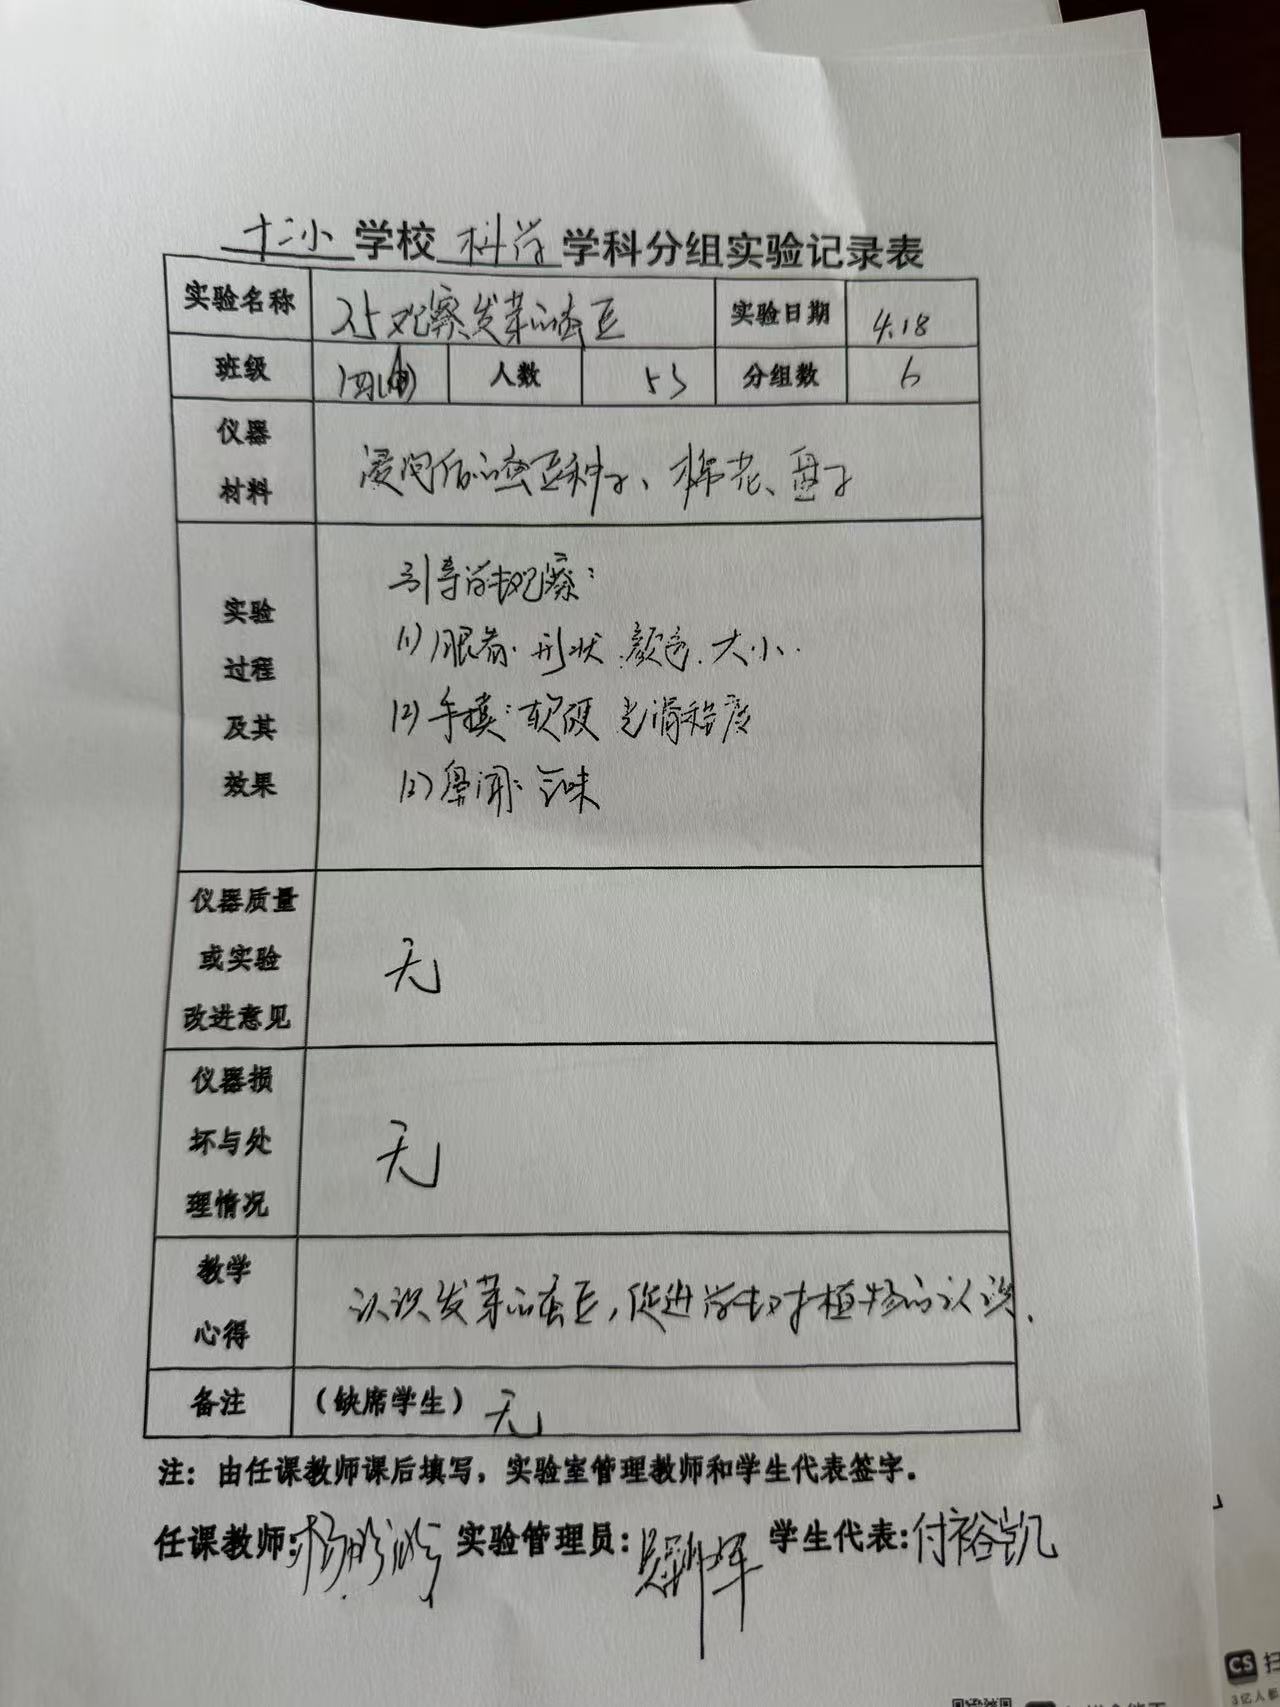 十二小 学校 科学 学科分组实验记录表
实验名称 25观察发芽的蚕豆 实验日期 4.18
班级 人数 53 分组数 6
仪器
材料
浸润后的蚕豆种子、棉花、盘子
实验
过程
及其
效果
引导学生观察:
(1)眼看.形状.颜色.大小.
(2)手摸:软硬 光滑程度
(3)鼻闻:气味
仪器质量
或实验
改进意见
无
仪器损
坏与处
理情况
无
教学
心得
认识发芽的蚕豆,促进学生对植物的认识.
备注 (缺席学生) 无
注:由任课教师课后填写,实验室管理教师和学生代表签字.
任课教师: 实验管理员: 学生代表:付裕凯
CS 扫
3亿人都